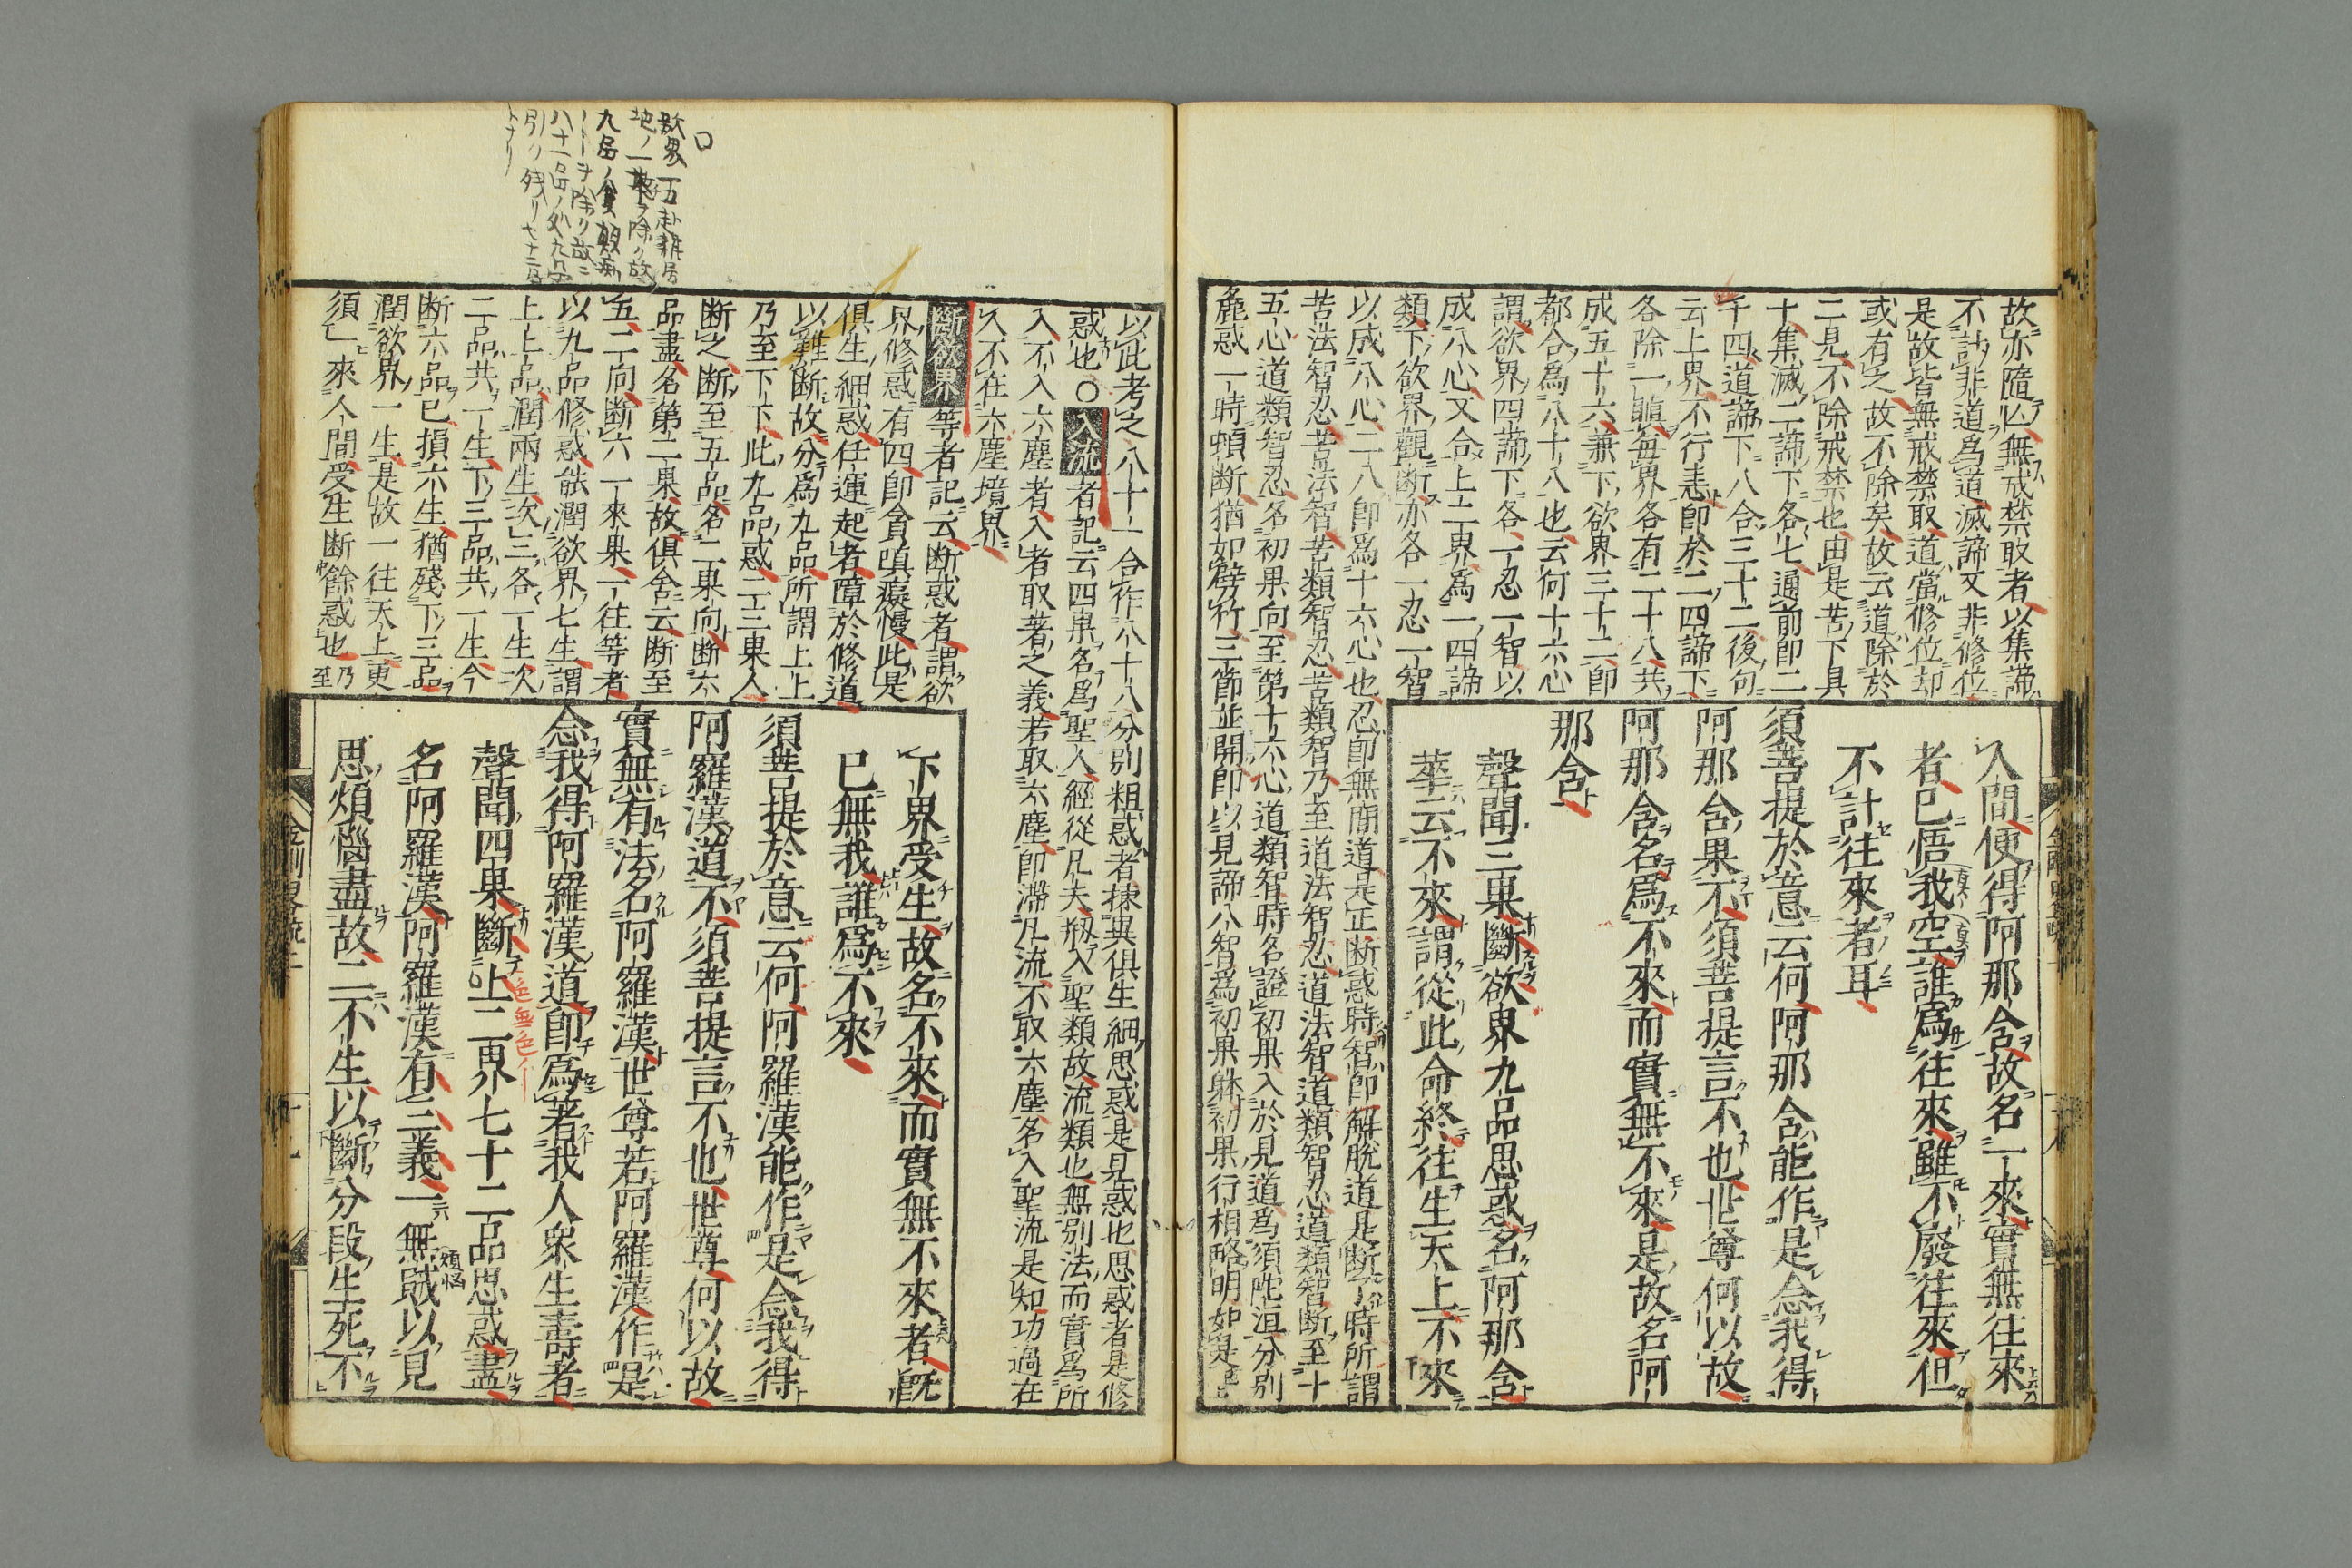 故亦隨亾無戒禁取者以集諦
不計非道爲道滅諦又非修位
是故皆無戒禁取道當修位却
或有之故不除矣故云道除於
二見不除戒禁也由是苦下具
十集滅二諦下各七通前即二
十四道諦下八合三十二後句
云上界不行恚即於二四諦下
各除一瞋每界各有二十八共
成五十六兼下欲界三十二即
都合爲八十八也云何十六心
謂欲界四諦下各一忍一智以
成八心又合上二界爲一四諦
類下欲界觀斷亦各一忍一智
以成八心二八即爲十六心也忍即無間道是正断惑時智即解脫道是断了時所謂
苦法智忍苦法智苦類智忍苦類智乃至道法智忍道法智道類智忍道類智断至十
五心道類智忍名初果向至第十六心道類智時名證初果入於見道爲須陀洹分別
麁惑一時頓断猶如劈竹三節並開即以見諦八智爲初果躰初果行相略明如是
入間便得阿那含故名一來實無往來
者已悟我空誰爲往來雖不廢往來但
不計往來者耳
須菩提於意云何阿那含能作是念我得
阿那含果不須菩提言不也世尊何以故
阿那含名爲不來而實無不來是故名阿
那含
聲聞三果斷欲界九品思惑名阿那含
華云不來謂從此命終往生天上不來
以此考之八十一合作八十八分別粗惑者揀異俱生細思惑是見惑也思惑者是修
惑也〇入流者記云四果名爲聖人經從凡夫瓶入聖類故流類也無別法而實爲所
入不入六塵者入者取著之義若取六塵即滯凡流不取六塵名入聖流是知功過在
入不在六塵境界
斷欲界等者記云断惑者謂欲
界修惑有四即貪嗔癡慢此是
俱生細惑任運起者障於修道
以難断故分爲九品所謂上上
乃至下下此九品惑二三果人
断之断至五品名二果向断六
品盡名第二果故俱舍云断至
五二向断六一來果一往等者
以九品修惑能潤欲界七生謂
上上品潤兩生次三各一生次
二品共一生下三品共一生今
断六品已損六生猶殘下三品
潤欲界一生是故一往天上更
須一來人間受生断餘惑也乃至
下界受生故名不來而實無不來者既
已無我誰爲不來
須菩提於意云何阿羅漢能作是念我得
阿羅漢道不須菩提言不也世尊何以故
實無有法名阿羅漢世尊若阿羅漢作是
念我得阿羅漢道即爲著我人衆生壽者
聲聞四果斷上二界七十二品思惑盡
色無色ノ
名阿羅漢阿羅漢有三義一無賊以見
煩惱
思煩惱盡故二不生以斷分段生死不